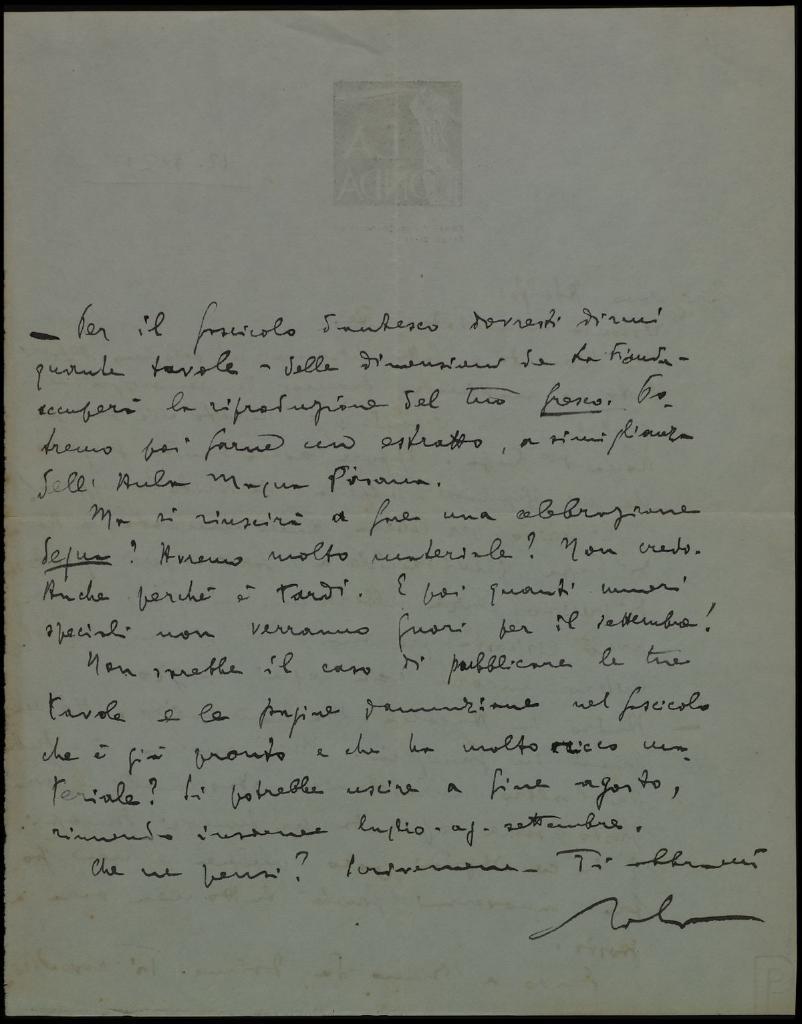 – Per il fascicolo dantesco dovresti dirmi
quante tavole – delle dimensioni de La Fionda –
occuperà la riproduzione del tuo fresco. Po-
tremo poi farne un estratto, a simiglianza
dell'Aula Magna Pisana.
Ma si riuscirà a fare una celebrazione
degna? Avremo molto materiale? Non credo.
Anche perché è tardi. E poi quanti numeri
speciali non verranno fuori per il settembre!
Non sarebbe il caso di pubblicare le tue
tavole e le pagine dannunziane nel fascicolo
che è già pronto e che ha molto ricco ma-
teriale? Si potrebbe uscire a fine agosto,
riunendo insieme luglio-ag-settembre.
Che ne pensi? Scrivemene – Ti abbracci